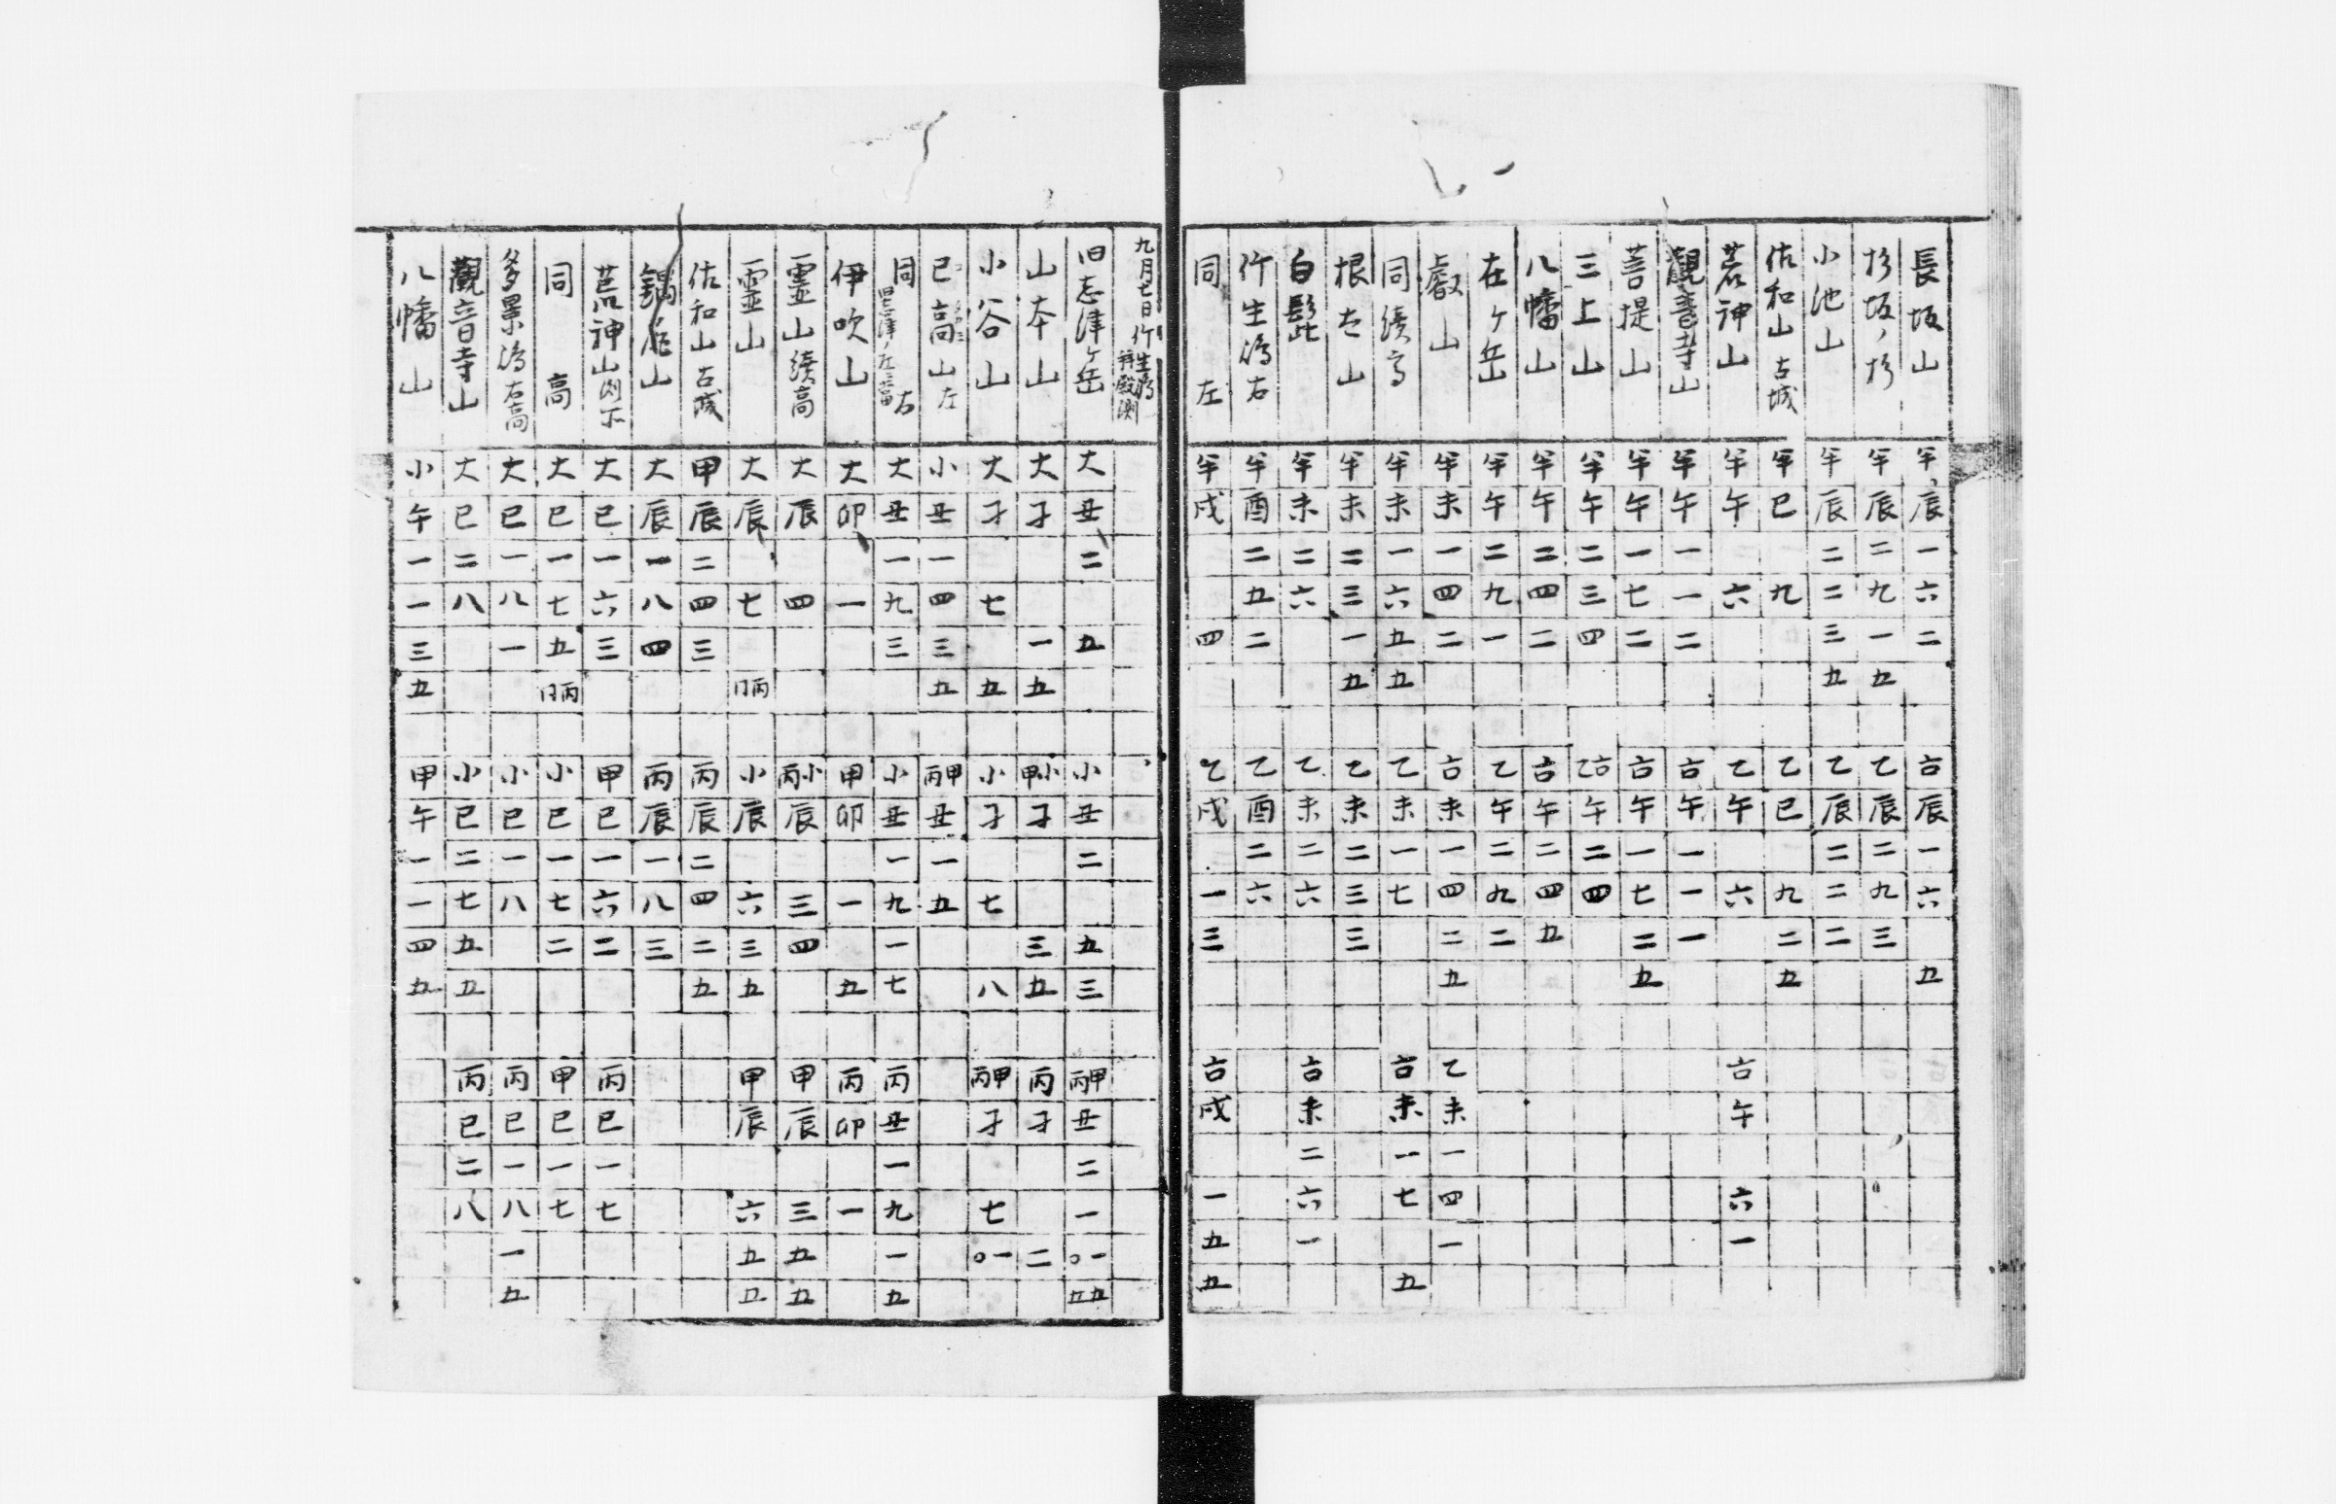 長坂山 半辰一六二 古辰一六 五
杉坂ノ杉 半辰二九一五 乙辰二九三
小池山 半辰二二三五 乙辰二二二
佐和山古城 半巳 九 乙巳 九二五
荒神山 半午 六 乙午 六 古午 六一
觀音寺山 半午一一二 古午一一一
菩提山 半午一七二 古午一七二五
三上山 半午二三四 乙古午二四
八幡山 半午二四二 古午二四五
在ヶ岳 半午二九一 乙午二九二
叡山 半未一四二 古未一四二五 乙未一四一
同續高 半未一六五五 乙未一七 古未一七 五
根古山 半未二三一五 乙未二三三
白髭 半未二六 乙未二六 古未二六一
竹生島右 半酉二五二 乙酉二六
同 左 半戌 四 乙戌 一三 古戌 一五五
九月七日竹生島 拝殿測
旧志津ヶ岳 大丑二 五 小丑二 五三 丙甲丑二一
山本山 大子 一五 甲小子 三五 丙子 二
小谷山 大子 七 五 小子 七 八 丙甲子 七
己高山左 小丑一四三五 丙甲丑一五
同 右 大丑一九三 小丑一九一七 丙丑一九一五
伊吹山 大卯 一 甲卯 一 五 丙卯 一
霊山續高 大辰 四 丙小辰 三四 甲辰 三五五
霊山 大辰 七 小辰 六三五 甲辰 六五五
佐和山古城 甲辰二四三 丙辰二四二五
鍋尻山 大辰一八四 丙辰一八三
荒神山 大巳一六三 甲巳一六二 丙巳一七
同 高 大巳一七五 小巳一七二 甲巳一七
多景島右高 大巳一八一 小巳一八 丙巳一八一五
觀音寺山 大巳二八 小巳二七五五 丙巳二八
八幡山 小午一一三五 甲午一一四五